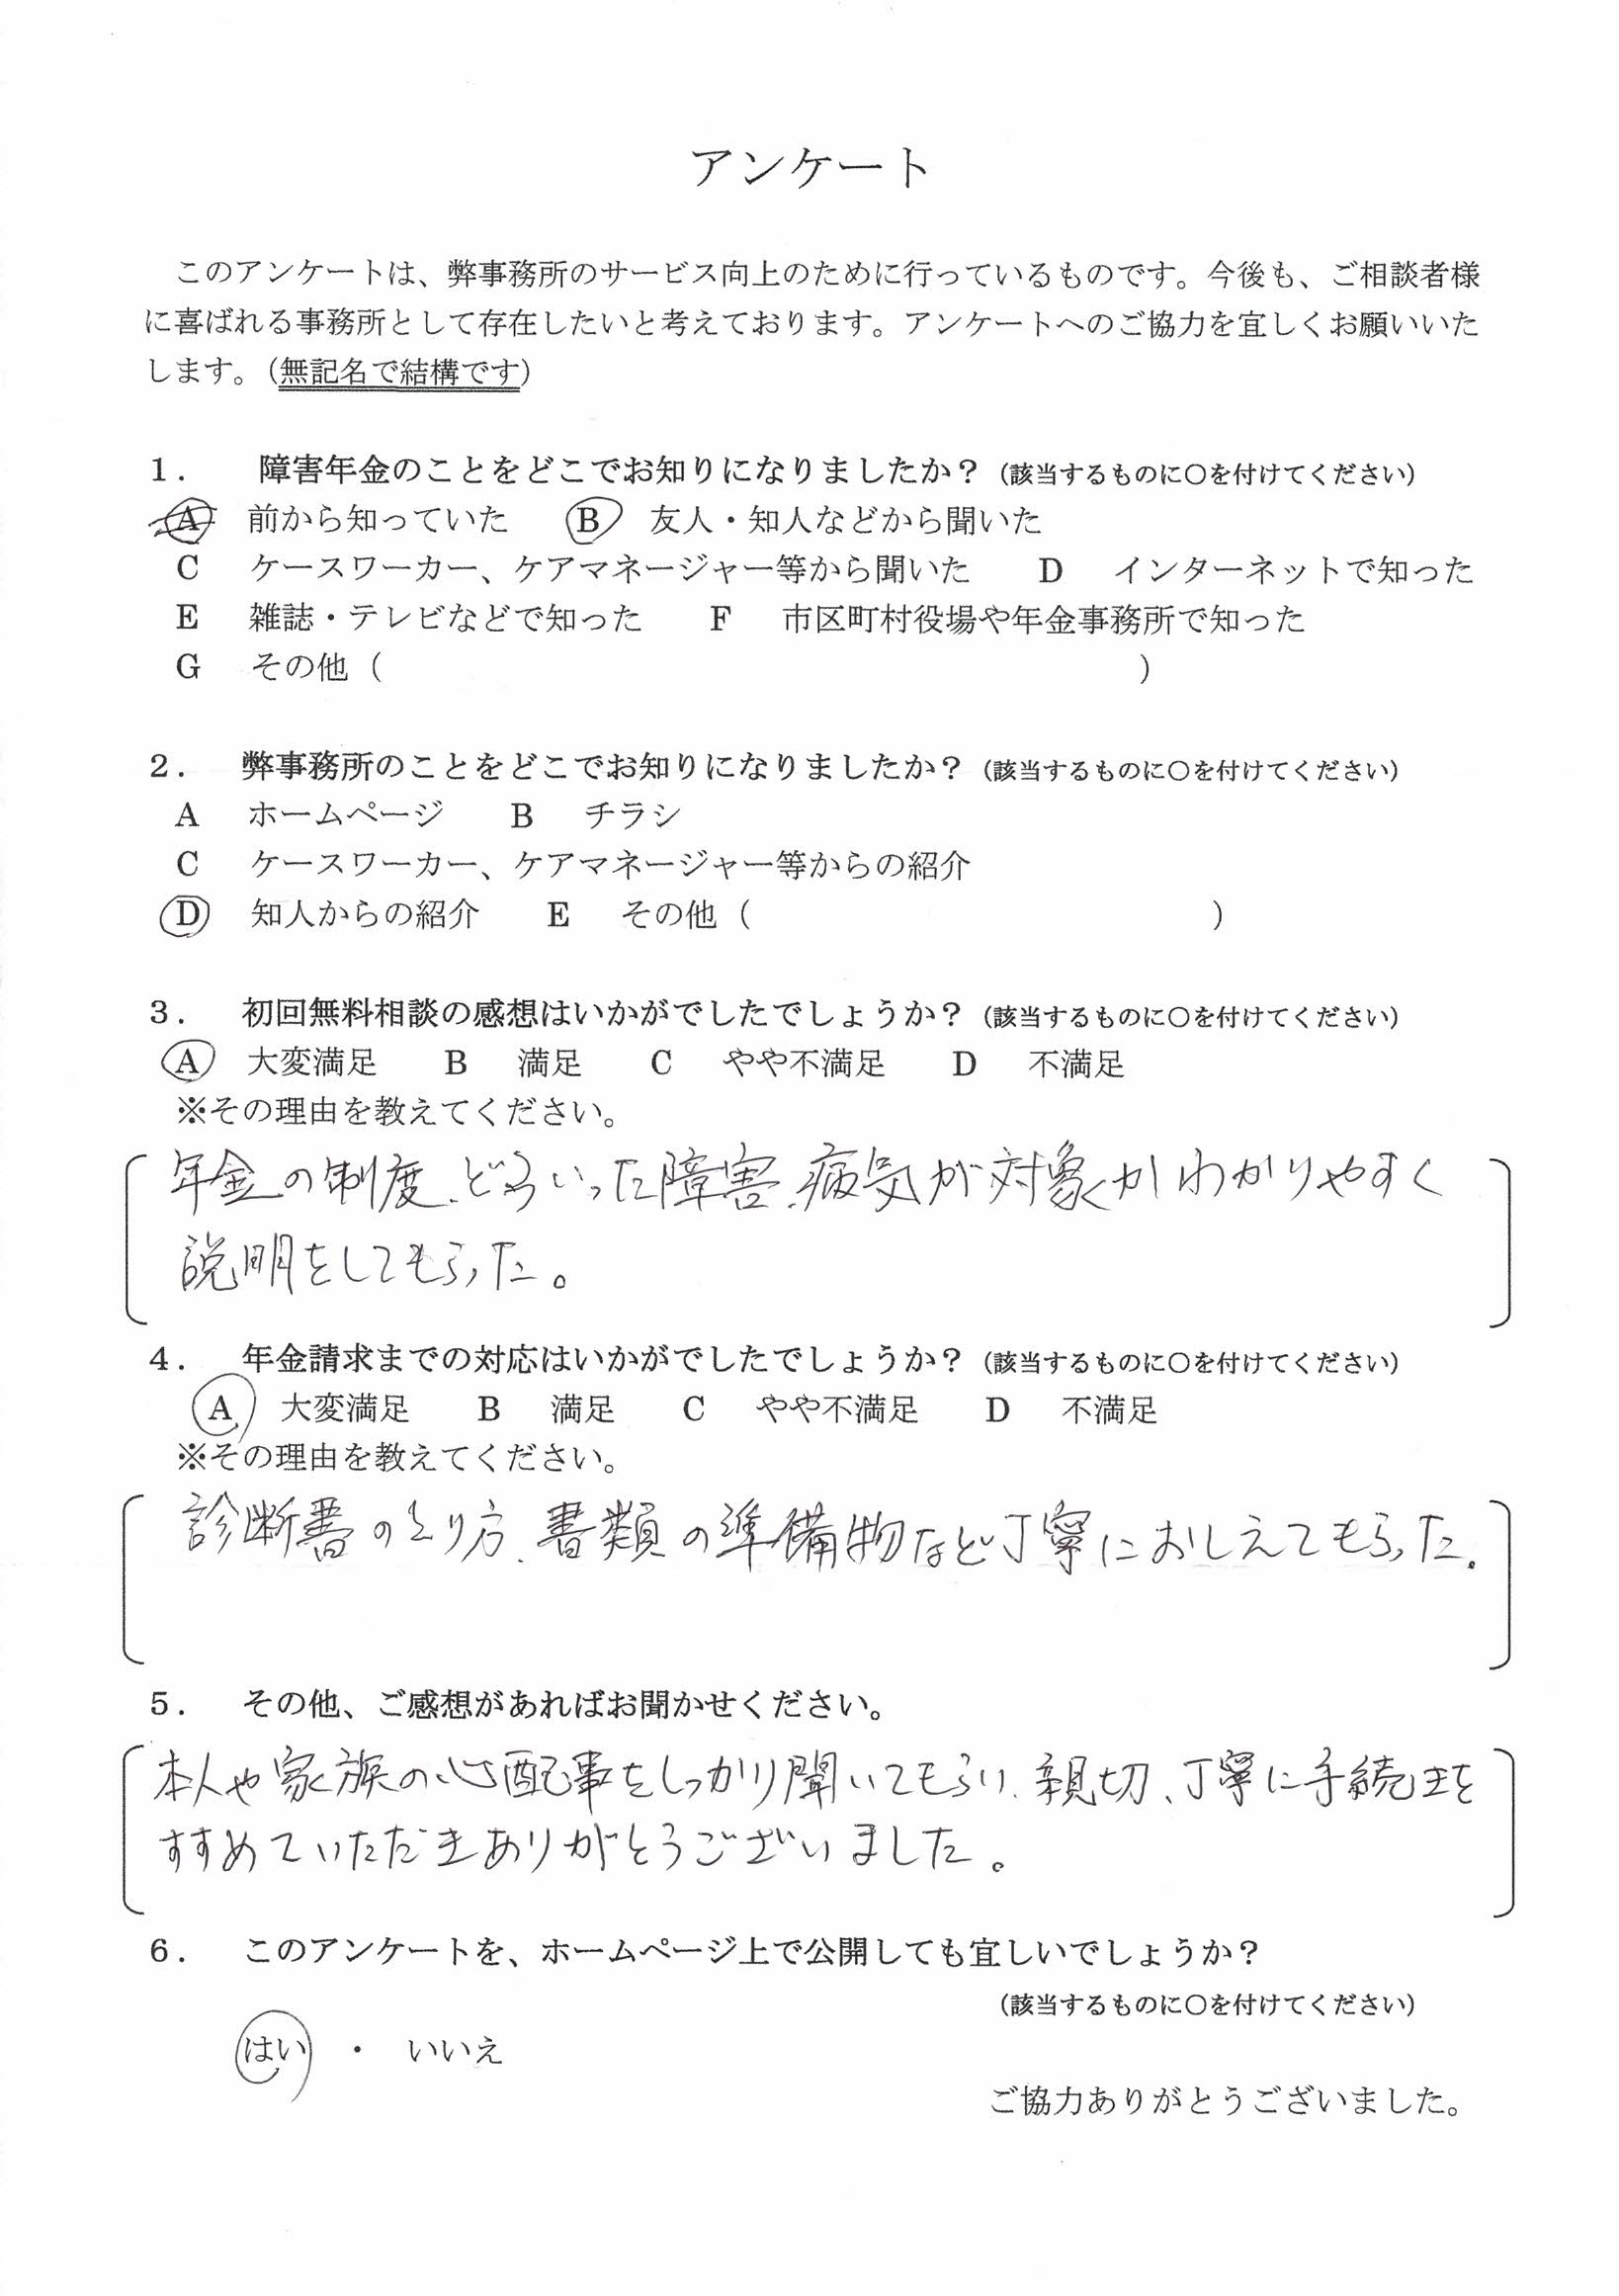 アンケート
このアンケートは、弊事務所のサービス向上のために行っているものです。今後も、ご相談者様
に喜ばれる事務所として存在したいと考えております。アンケートへのご協力を宜しくお願いいた
します。（無記名で結構です）
１．　障害年金のことをどこでお知りになりましたか？（該当するものに〇を付けてください）
A　前から知っていた　B　友人・知人などから聞いた
C　ケースワーカー、ケアマネージャー等から聞いた　D　インターネットで知った
E　雑誌・テレビなどで知った　F　市区町村役場や年金事務所で知った
G　その他（　　　　　　　）
２．　弊事務所のことをどこでお知りになりましたか？（該当するものに〇を付けてください）
A　ホームページ　B　チラシ
C　ケースワーカー、ケアマネージャー等からの紹介
D　知人からの紹介　E　その他（　　　　　　　）
３．　初回無料相談の感想はいかがでしたでしょうか？（該当するものに〇を付けてください）
A　大変満足　B　満足　C　やや不満足　D　不満足
※その理由を教えてください。
年金の制度、どういった障害、病気が対象かわかりやすく
説明をしてもらった。
４．　年金請求までの対応はいかがでしたでしょうか？（該当するものに〇を付けてください）
A　大変満足　B　満足　C　やや不満足　D　不満足
※その理由を教えてください。
診断書のとり方、書類の準備物など丁寧におしえてもらった。
５．　その他、ご感想があればお聞かせください。
本人や家族の心配事をしっかり聞いてもらい、親切、丁寧に手続きを
すすめていただきありがとうございました。
６．　このアンケートを、ホームページ上で公開しても宜しいでしょうか？
（該当するものに〇を付けてください）
はい　・　いいえ
ご協力ありがとうございました。